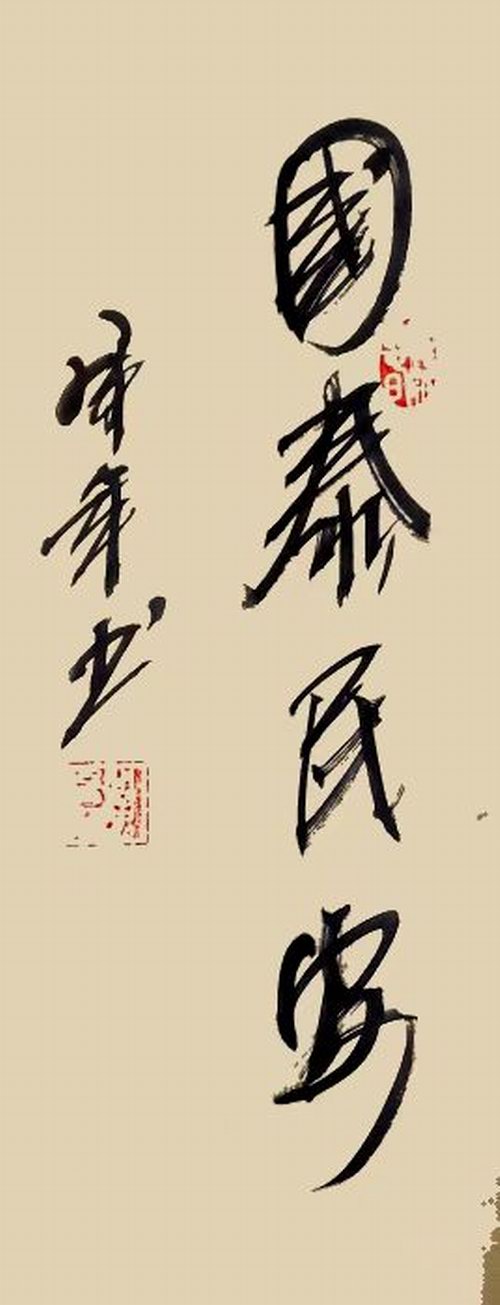 國泰民安
年书